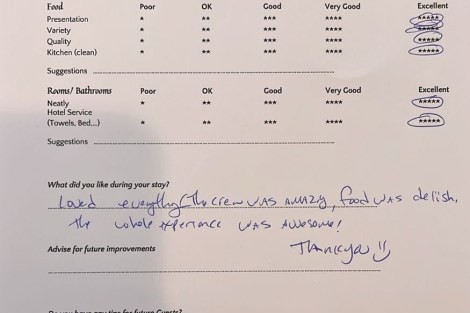 Food Poor OK Good Very Good Excellent
Presentation * ** *** **** *****
Variety * ** *** **** *****
Quality * ** *** **** *****
Kitchen (clean) * ** *** **** *****
Suggestions
Rooms/ Bathrooms Poor OK Good Very Good Excellent
Neatly * ** *** **** *****
Hotel Service
(Towels, Bed...) * ** *** **** *****
Suggestions
What did you like during your stay?
Loved everything! The crew was amazing, food was delish,
the whole experience was awesome!
Thank you
Advise for future improvements